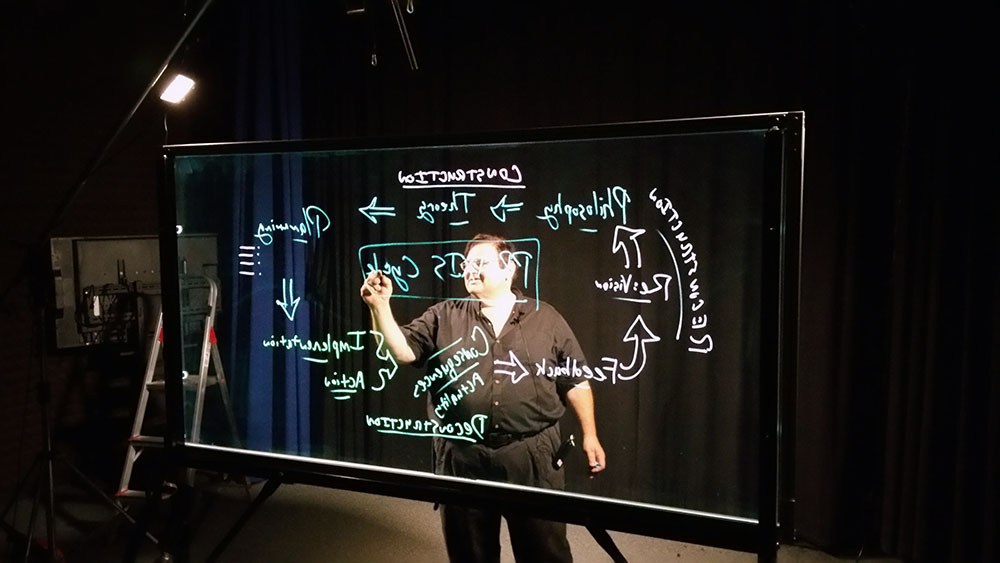 CONSTRUCTION
Philosophy
Theory
Planning
Cycle
RECONSTRUCTION
Re:Vision
Implementation
Action
Consequences
Actuality
Feedback
DECONSTRUCTION